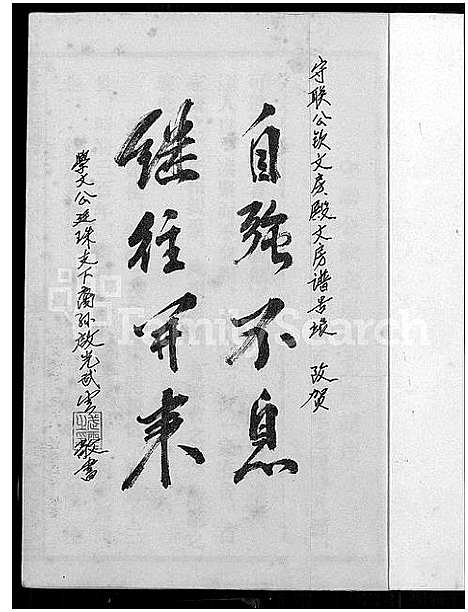 守联公钦文房殿文房谱告竣 政贺
自强不息
继往开来
学文公延珠支下裔孙政光武 敬书
FamilySearch